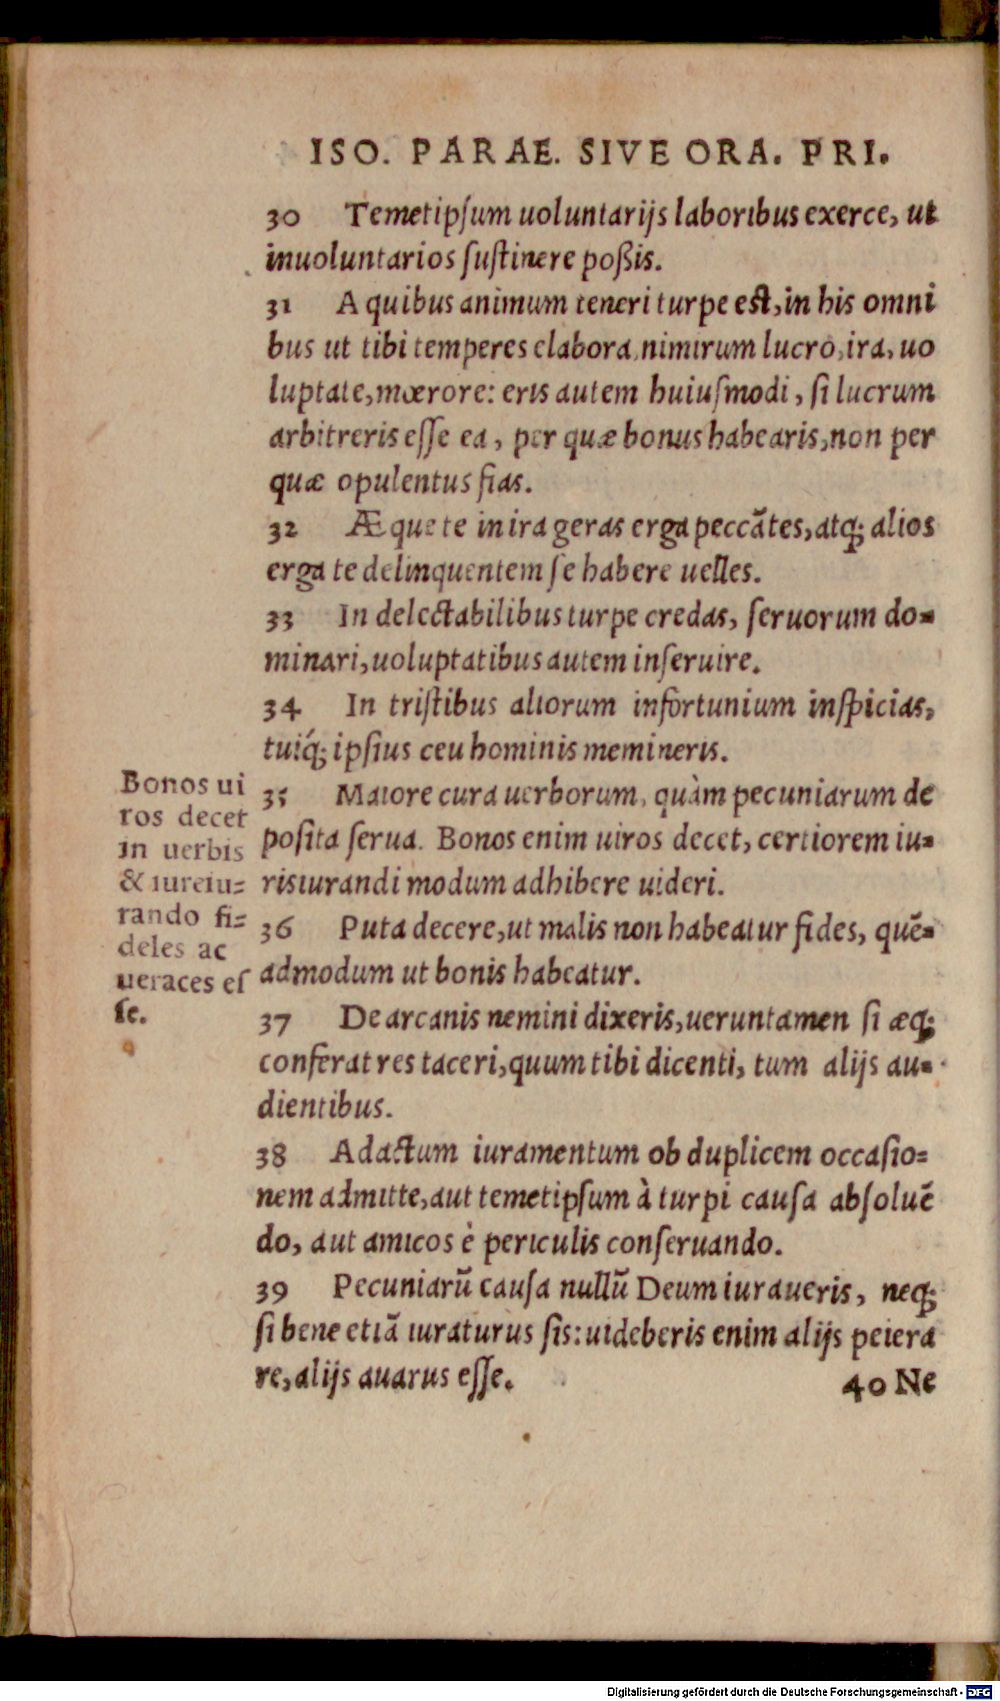 ISO. PARAE. SIVE ORA. PRI.
30 Temetipſum uoluntarijs laboribus exerce, ut
inuoluntarios ſuſtinere poßis.
31 A quibus animum teneri turpe eſt, in his omni
bus ut tibi temperes elabora, nimirum lucro, ira, uo
luptate, mœrore: eris autem huiuſmodi, ſi lucrum
arbitreris eſſe ea, per quæ bonus habearis, non per
quæ opulentus fias.
32 Æque te in ira geras erga peccãtes, atq; alios
erga te delinquentem ſe habere uelles.
33 In delectabilibus turpe credas, ſeruorum do-
minari, uoluptatibus autem inſeruire.
34 In triſtibus aliorum infortunium inſpicias,
tuiq́; ipſius ceu hominis memineris.
35 Maiore cura uerborum, quàm pecuniarum de
poſita ſerua. Bonos enim uiros decet, certiorem iu-
risiurandi modum adhibere uideri.
36 Puta decere, ut malis non habeatur fides, quẽ-
admodum ut bonis habeatur.
37 De arcanis nemini dixeris, ueruntamen ſi æq;
conferat res taceri, quum tibi dicenti, tum alijs au-
dientibus.
38 Adactum iuramentum ob duplicem occaſio-
nem admitte, aut temetipſum à turpi cauſa abſoluẽ
do, aut amicos è periculis conſeruando.
39 Pecuniarũ cauſa nullũ Deum iuraueris, neq;
ſi bene etiã iuraturus ſis: uideberis enim alijs peiera
re, alijs auarus eſſe.
40 Ne
Bonos ui
ros decet
in uerbis
& iureiu-
rando fi-
deles ac
ueraces eſ
ſe.
Digitalisierung gefördert durch die Deutsche Forschungsgemeinschaft - DFG